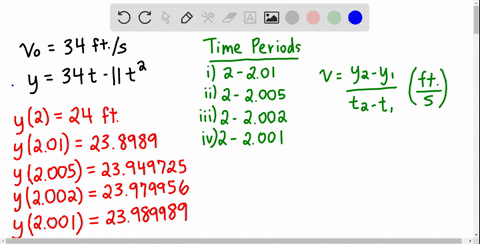 v₀ = 34 ft./s
y = 34t - 11t²
y(2) = 24 ft.
y(2.01) = 23.8989
y(2.005) = 23.949725
y(2.002) = 23.979956
y(2.001) = 23.989989
Time Periods
i) 2 - 2.01
ii) 2 - 2.005
iii) 2 - 2.002
iv) 2 - 2.001
v = y₂ - y₁ / t₂ - t₁ (ft. / s)